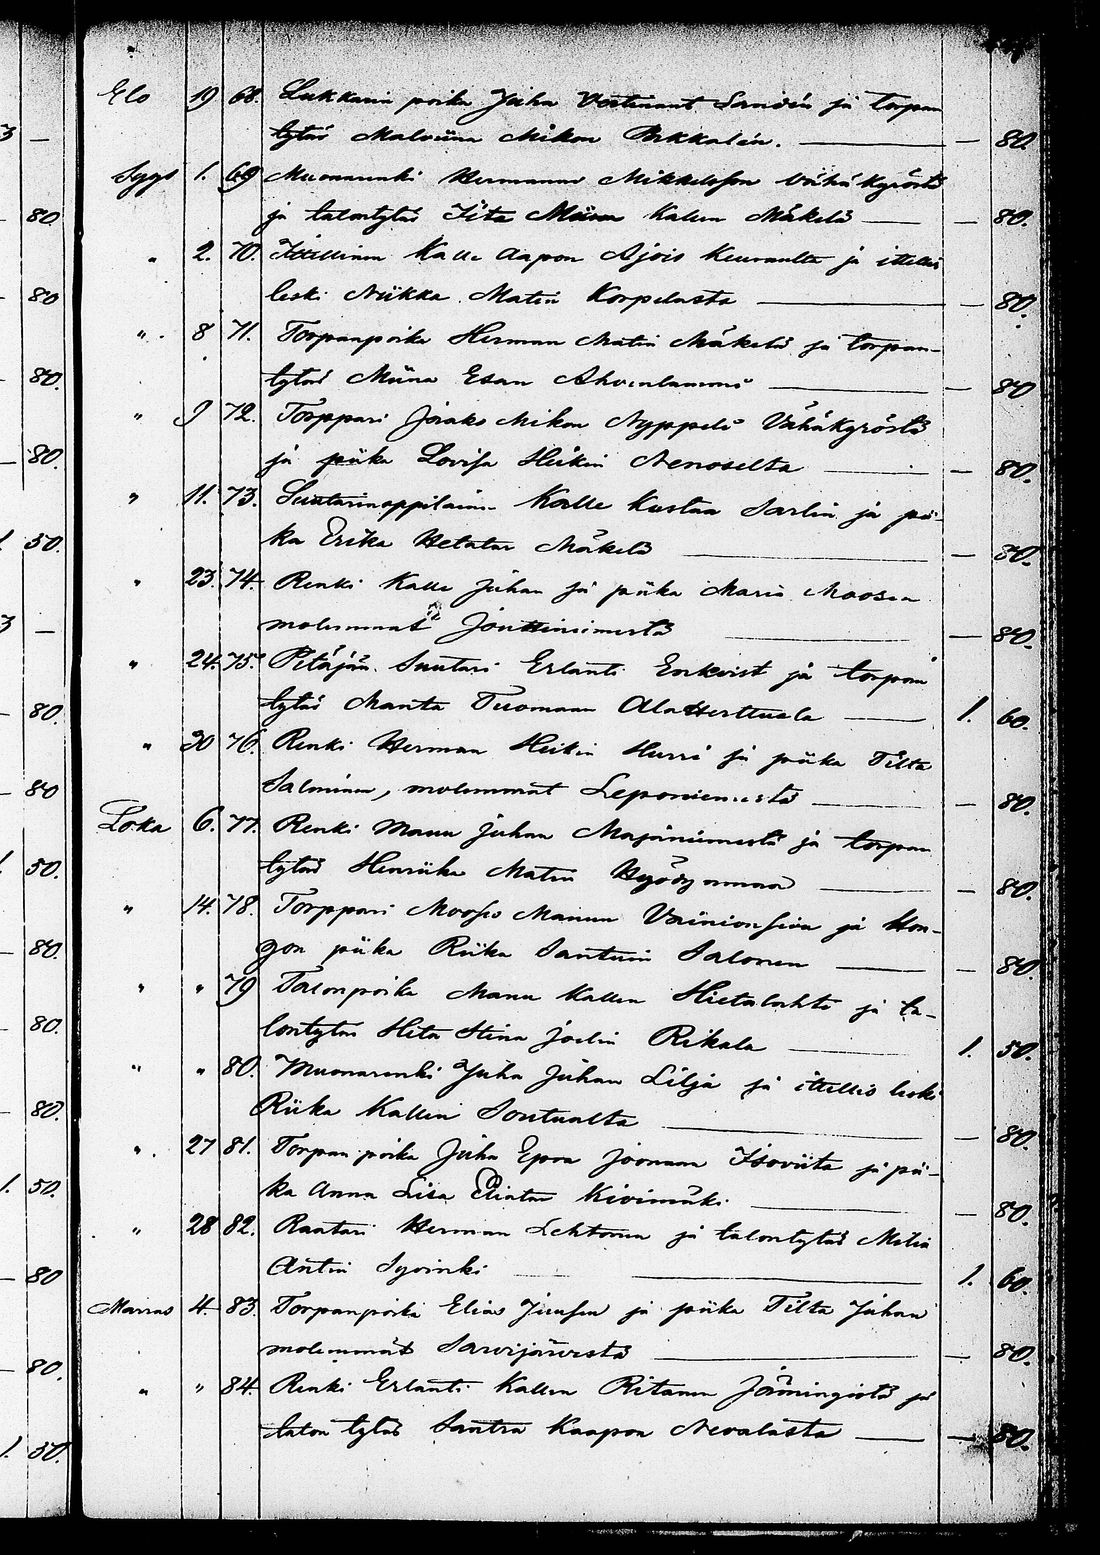 Elo 19 68. Lukkarin poika Juha Vertinant Sandén ja torpan
tytär Malviina Mikon Pukkalén. — — 80.
Syys 1. 69 Muonarenki Hermanni Mikkelsson Vähäkyröstä
ja talontytär Iita Miina Kallen Mäkelä — — 80.
" 2. 70. Itsellinen Kalle Aapon Ajois Keuruulta ja itsellis
leski Niikka Matin Korpelasta — — 80.
" 8 71. Torpanpoika Herman Matin Mäkelä ja torpan-
tytär Miina Esan Ahvenlammi — — 80
" 9 72. Torppari Jaako Mikon Nyppeli Vähäkyröstä
ja piika Lovisa Heikin Nenoselta — — 80.
" 11. 73. Suutarinoppilainen Kalle Kustaa Sarlin ja pii-
ka Erika Hetatar Mäkelä — — 80.
" 23. 74. Renki Kalle Juhan ja piika Maria Moosen
molemmat Jouttiniemestä — — 80.
" 24. 75. Pitäjän Suutari Erlanti Enkvist ja torpan
tytär Manta Tuomaan Ala Herttuala — 1. 60.
" 30 76. Renki Herman Heikin Hurri ja piika Tilta
Salminen, molemmat Leponiemestä — — 80.
Loka 6. 77. Renki Manu Juhan Majaniemestä ja torpan
tytär Henriika Matin — — 80.
" 14. 78. Torppari Mooses Manun Vainionsivu ja Hon-
gon piika Riika Santerin Salonen — — 80.
" " 79 Talonpoika Manu Kallen Hietalahti ja ta-
lontytär Heta Stina Joelin Rikala — 1. 50.
" " 80. Muonarenki Juha Juhan Lilja ja itsellis leski
Riika Kallen Sontualta — — 80.
" 27 81. Torpan poika Juha Epra Joonaan Isoviita ja pii-
ka Anna Lisa Eliatar Kivimäki — — 80.
" 28 82. Raatari Herman Lehtonen ja talontytär Milia
Antin Syvinki — 1. 60.
Marras 4 83. Torpanpoika Elias Juusen ja piika Tilta Juhan
molemmat Sarvijärvestä — — 80.
" " 84. Renki Erlanti Kallen Ritanen Jämingistä ja
talon tytär Santra Kaapon Nevalasta — — 80.